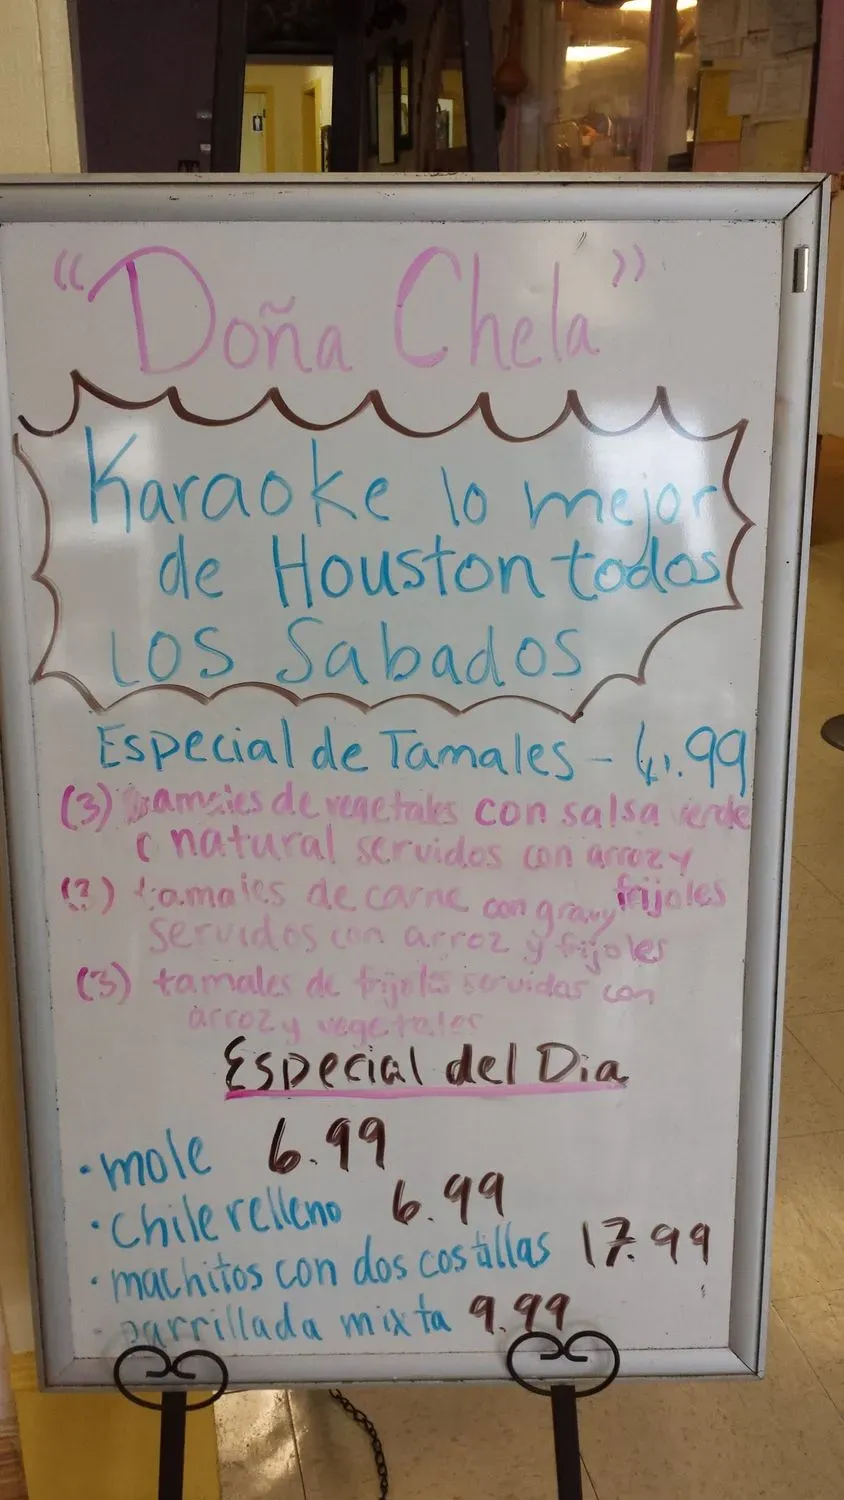 "Doña Chela"
Karaoke lo mejor
de Houston todos
Los Sabados
Especial de Tamales -
(3) de vegetales con salsa verde
natural servidos con arroz y
frijoles
tamales de carne con gravy
servidos con arroz y frijoles
(3) tamales de frijoles servidos con
arroz y vegetales
Especial del Dia
• mole 6.99
• Chile relleno 6.99
• machitos con dos costillas 17.99
• parrillada mixta 9.99